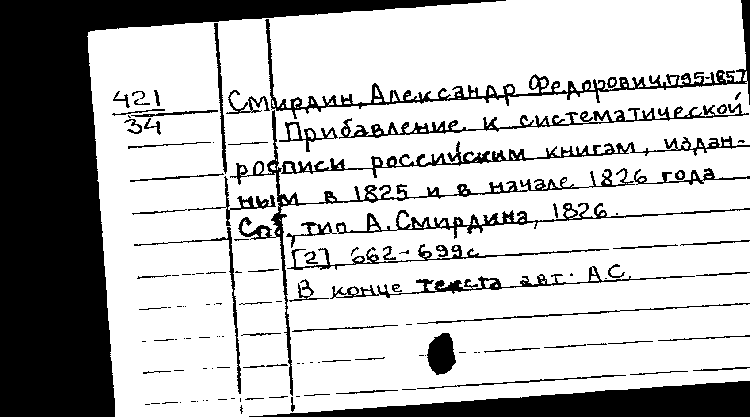 421
34
Смирдин, Александр Федорович, 1795-1857
Прибавление к систематической
росписи российским книгам, издан-
ным в 1825 и в начале 1826 года
Спб, тип А. Смирдина, 1826.
[2], 662-699с
В конце текста авт. А.С.